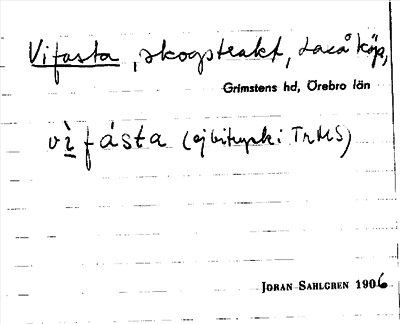 Vifasta, skogstrakt, Laxå köp,
Grimstens hd, Örebro län
vì fásta (ej bitryck i TrMS)
JÖRAN SAHLGREN 1906